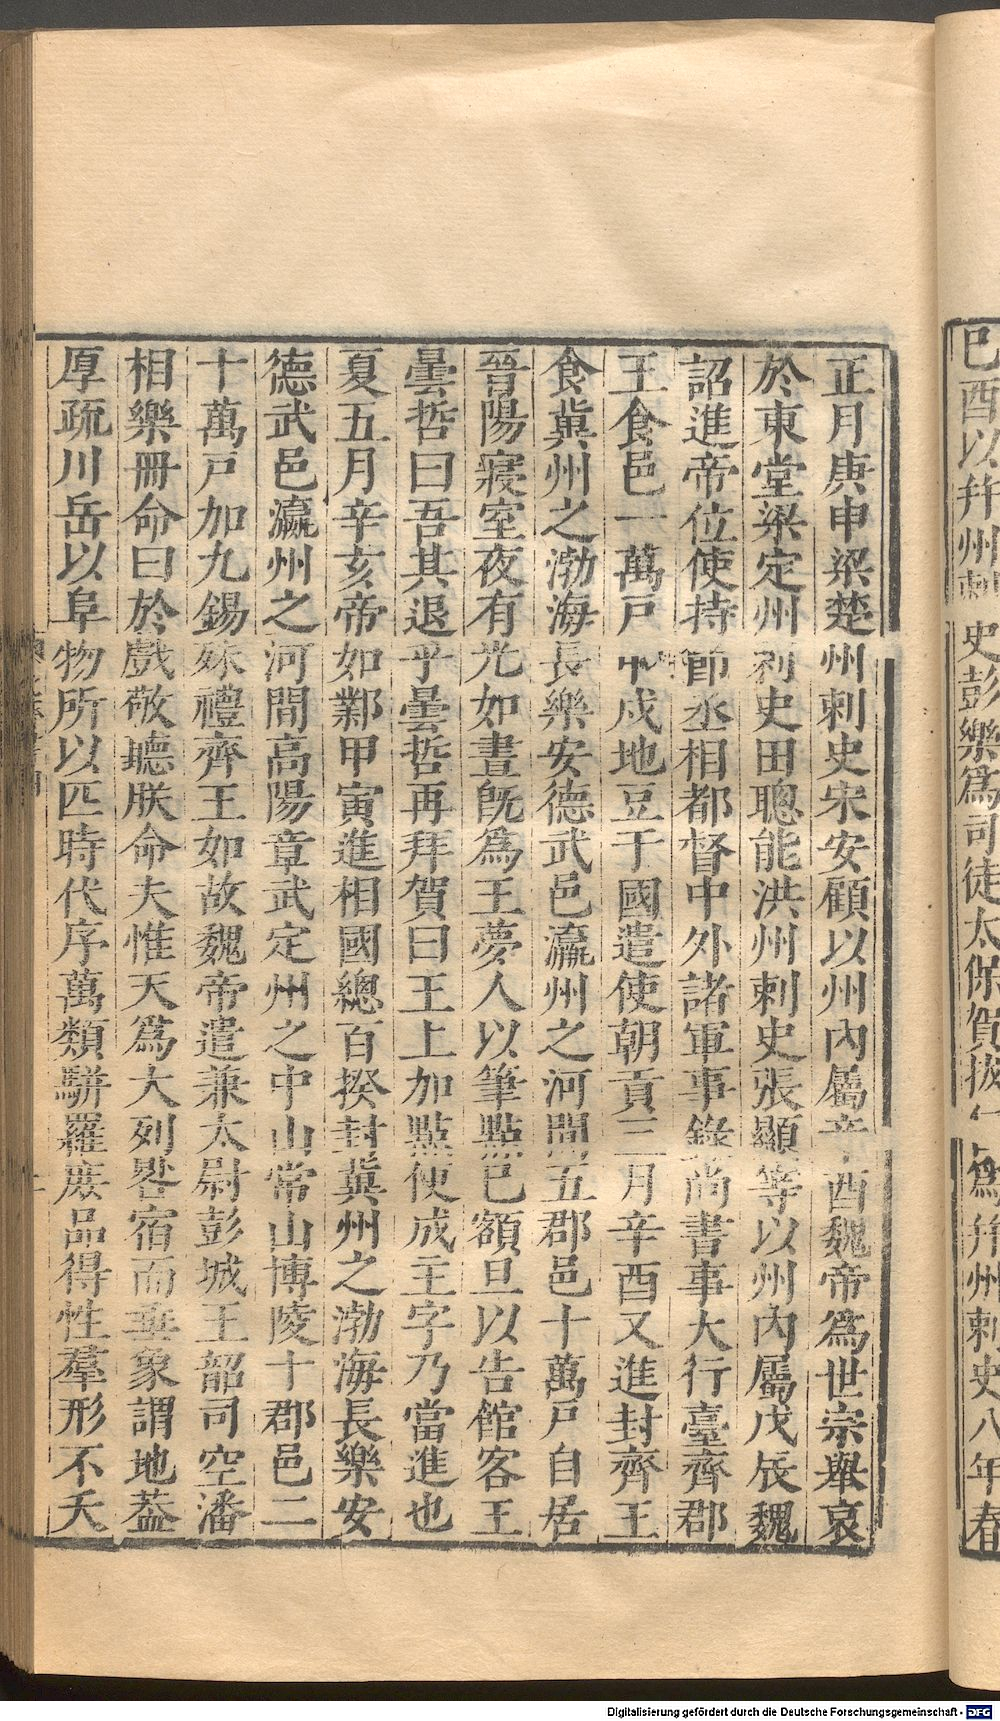 巳酉以幷州刺史彭樂爲司徒太保賀拔仁爲幷州刺史八年春
正月庚申梁楚州刺史宋安顧以州內屬辛酉魏帝爲世宗舉哀
於東堂梁定州刺史田聰能洪州刺史張顯等以州內屬戊辰魏
詔進帝位使持節丞相都督中外諸軍事錄尚書事大行臺齊郡
王食邑一萬戸甲戍地豆于國遣使朝貢三月辛酉又進封齊王
食冀州之渤海長樂安德武邑瀛州之河間五郡邑十萬戸自居
晉陽寢室夜有光如晝旣爲王夢人以筆點巳額旦以告館客王
曇哲曰吾其退乎曇哲再拜賀曰王上加點便成主字乃當進也
夏五月辛亥帝如鄴甲寅進相國總百揆封冀州之渤海長樂安
德武邑瀛州之河間高陽章武定州之中山常山博陵十郡邑二
十萬戸加九錫殊禮齊王如故魏帝遣兼太尉彭城王韶司空潘
相樂冊命曰於戲敬聽朕命夫惟天爲大列晷宿而垂象謂地葢
厚疏川岳以阜物所以匹時代序萬類駢羅庻品得性羣形不夭
Digitalisierung gefördert durch die Deutsche Forschungsgemeinschaft - DFG